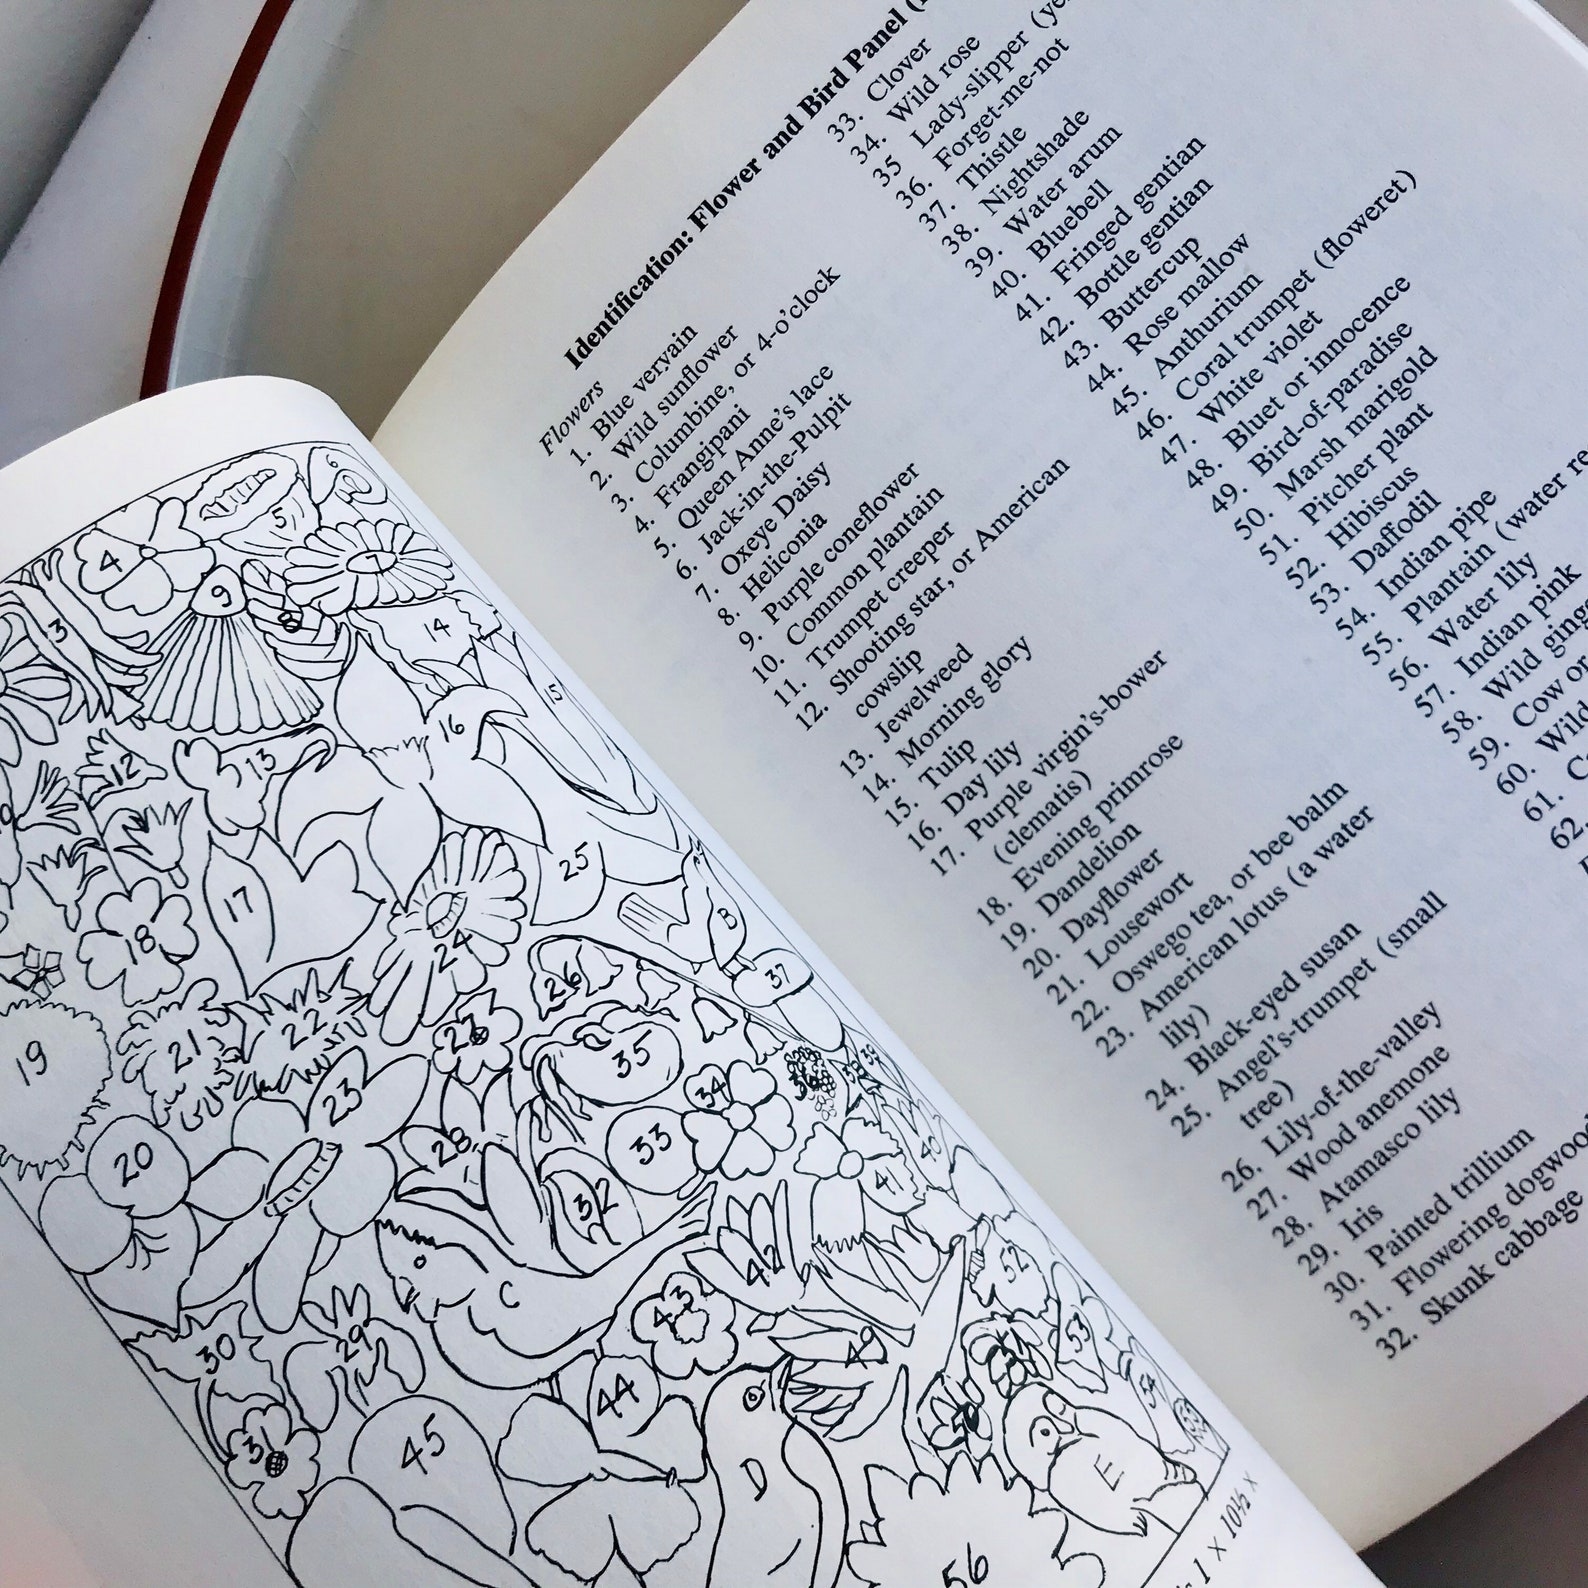 Identification: Flower and Bird Panel
Flowers
1. Blue veryain
2. Wild sunflower
3. Columbine, or 4-o'clock
4. Frangipani
5. Queen Anne's lace
6. Jack-in-the-Pulpit
7. Oxeye Daisy
8. Heliconia
9. Purple coneflower
10. Common plantain
11. Trumpet creeper
12. Shooting star, or American
cowslip
13. Jewelweed
14. Morning glory
15. Tulip
16. Day lily
17. Purple virgin's-bower
(clematis)
18. Evening primrose
19. Dandelion
20. Dayflower
21. Lousewort
22. Oswego tea, or bee balm
23. American lotus (a water
lily)
24. Black-eyed susan
25. Angel's-trumpet (small
tree)
26. Lily-of-the-valley
27. Wood anemone
28. Atamasco lily
29. Iris
30. Painted trillium
31. Flowering dogwood
32. Skunk cabbage
33. Clover
34. Wild rose
35 Lady-slipper
36. Forget-me-not
37. Thistle
38. Nightshade
39. Water arum
40. Bluebell
41. Fringed gentian
42. Bottle gentian
43. Buttercup
44. Rose mallow
45. Anthurium
46. Coral trumpet (floweret)
47. White violet
48. Bluet or innocence
49. Bird-of-paradise
50. Marsh marigold
51. Pitcher plant
52. Hibiscus
53. Daffodil
54. Indian pipe
55. Plantain (water
56. Water lily
57. Indian pink
58. Wild
59. Cow or
60. Wild
61.
62.
4
5
6
7
3
9
8
14
15
12
13
16
17
18
24
25
B
37
19
21
22
26
27
35
34
36
38
39
20
23
28
33
32
41
40
C
42
52
30
29
43
49
53
51
54
55
31
45
44
D
50
E
56
1 x 10½ x